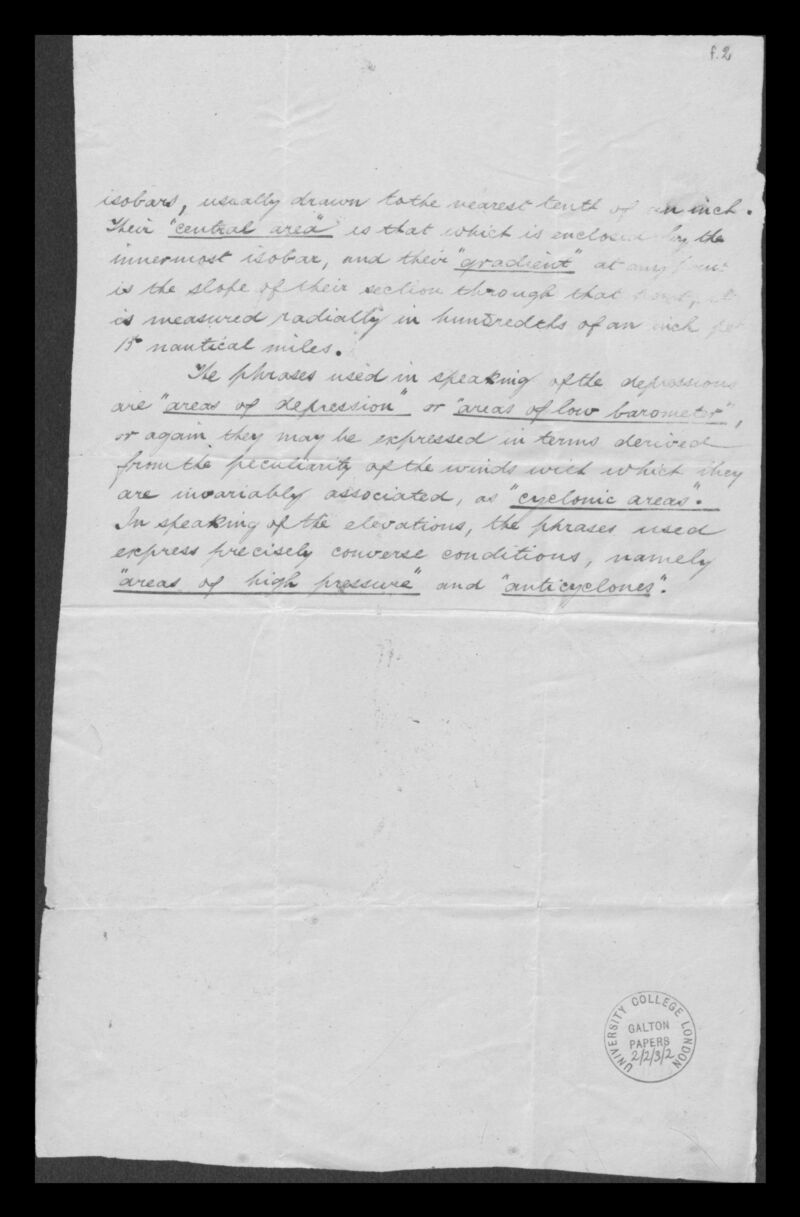 f.2
isobars, usually drawn to the nearest tenth of an inch.
Their "central area" is that which is enclosed by the
innermost isobar, and their "gradient" at any point
is the slope of their section through that point, it
is measured radially in hundredths of an inch per
15 nautical miles.
The phrases used in speaking of the depressions
are "areas of depression" or "areas of low barometer",
or again they may be expressed in terms derived
from the peculiarity of the winds with which they
are invariably associated, as "cyclonic areas".
In speaking of the elevations, the phrases used
express precisely converse conditions, namely
"areas of high pressure" and "anticyclones".
UNIVERSITY COLLEGE LONDON
GALTON
PAPERS
2/2/3/2